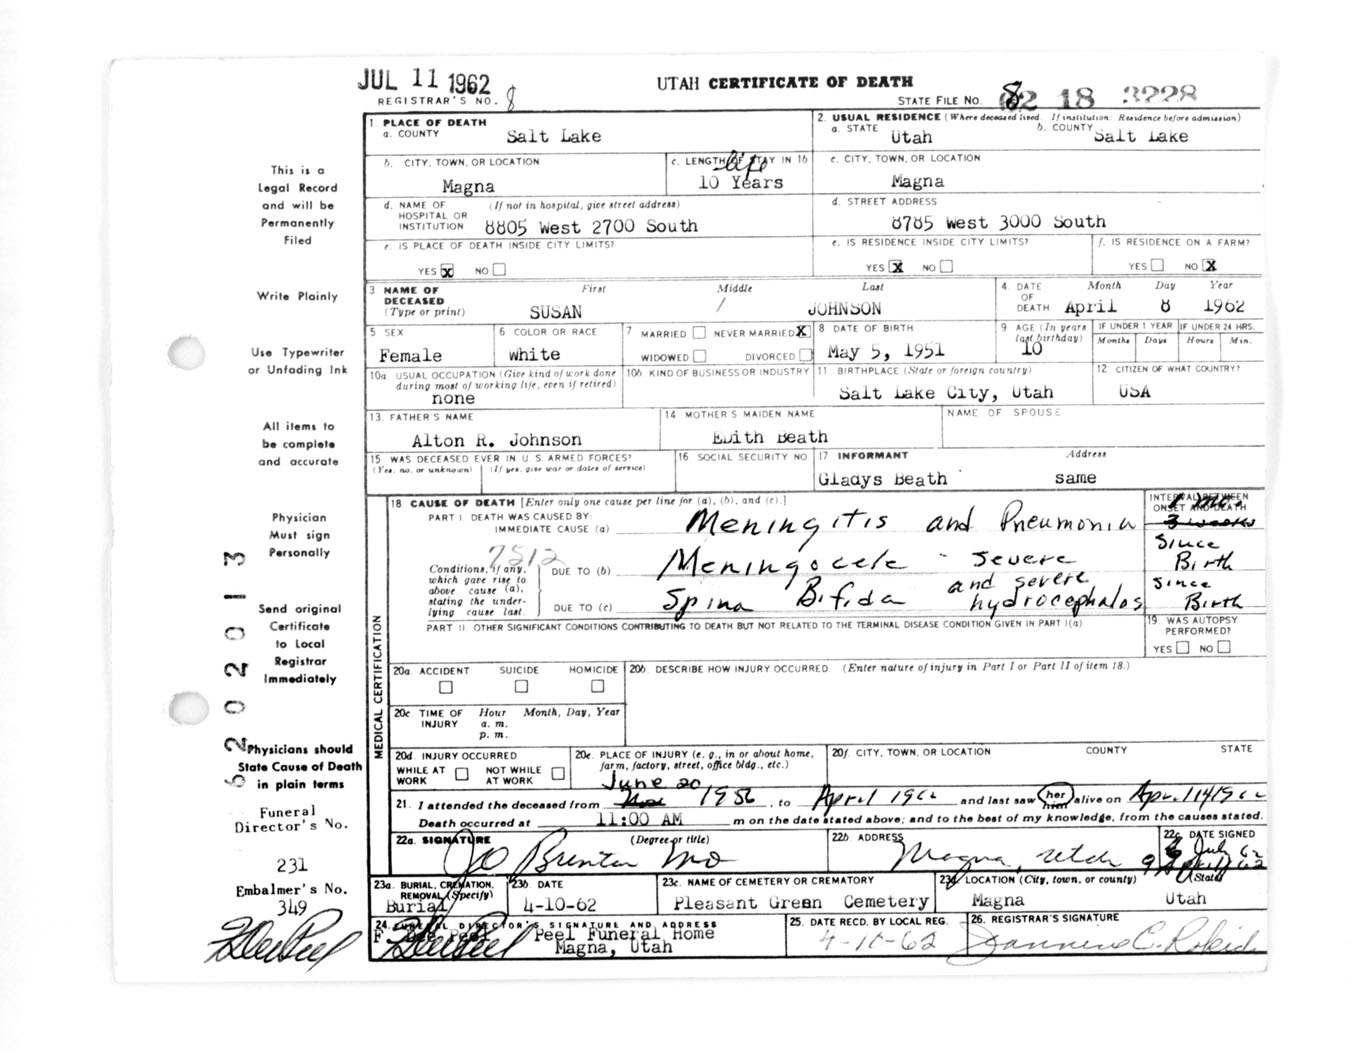 JUL 11 1962
UTAH CERTIFICATE OF DEATH
REGISTRAR'S NO. 8
STATE FILE NO. 62 18 3228
This is a
Legal Record
and will be
Permanently
Filed
Write Plainly
Use Typewriter
or Unfading Ink
All items to
be complete
and accurate
Physician
Must sign
Personally
Send original
Certificate
to Local
Registrar
Immediately
Physicians should
State Cause of Death
in plain terms
Funeral
Director's No.
231
Embalmer's No.
349
5202013
1. PLACE OF DEATH
a. COUNTY Salt Lake
2. USUAL RESIDENCE (Where deceased lived. If institution: Residence before admission)
a. STATE Utah b. COUNTY Salt Lake
b. CITY, TOWN, OR LOCATION
Magna
c. LENGTH OF STAY IN 1b
life
10 Years
c. CITY, TOWN, OR LOCATION
Magna
d. NAME OF (If not in hospital, give street address)
HOSPITAL OR
INSTITUTION 8805 West 2700 South
d. STREET ADDRESS
8785 West 3000 South
e. IS PLACE OF DEATH INSIDE CITY LIMITS?
YES X NO
e. IS RESIDENCE INSIDE CITY LIMITS?
YES X NO
f. IS RESIDENCE ON A FARM?
YES NO X
3 NAME OF First Middle Last
DECEASED
(Type or print) SUSAN / JOHNSON
4. DATE Month Day Year
OF
DEATH April 8 1962
5 SEX
Female
6 COLOR OR RACE
white
7 MARRIED NEVER MARRIED X
WIDOWED DIVORCED
8 DATE OF BIRTH
May 5, 1951
9 AGE (In years
last birthday)
10
IF UNDER 1 YEAR IF UNDER 24 HRS.
Months Days Hours Min.
10a USUAL OCCUPATION (Give kind of work done
during most of working life, even if retired)
none
10b KIND OF BUSINESS OR INDUSTRY
11 BIRTHPLACE (State or foreign country)
Salt Lake City, Utah
12 CITIZEN OF WHAT COUNTRY?
USA
13. FATHER'S NAME
Alton R. Johnson
14 MOTHER'S MAIDEN NAME
Edith Beath
NAME OF SPOUSE
15 WAS DECEASED EVER IN U.S. ARMED FORCES?
(Yes, no, or unknown) (If yes, give war or dates of service)
16 SOCIAL SECURITY NO
17 INFORMANT Address
Gladys Beath same
MEDICAL CERTIFICATION
18 CAUSE OF DEATH [Enter only one cause per line for (a), (b), and (c).]
INTERVAL BETWEEN
ONSET AND DEATH
PART I. DEATH WAS CAUSED BY:
IMMEDIATE CAUSE (a) Meningitis and Pneumonia 3 weeks
7512
Conditions, if any,
which gave rise to
above cause (a),
stating the under-
lying cause last.
DUE TO (b) Meningocele - severe Since Birth
DUE TO (c) Spina Bifida and severe hydrocephalos Since Birth
PART II. OTHER SIGNIFICANT CONDITIONS CONTRIBUTING TO DEATH BUT NOT RELATED TO THE TERMINAL DISEASE CONDITION GIVEN IN PART I(a)
19 WAS AUTOPSY
PERFORMED?
YES NO
20a ACCIDENT SUICIDE HOMICIDE
20b. DESCRIBE HOW INJURY OCCURRED (Enter nature of injury in Part I or Part II of item 18.)
20c TIME OF Hour Month, Day, Year
INJURY a. m.
p. m.
20d. INJURY OCCURRED
WHILE AT WORK NOT WHILE AT WORK
20e. PLACE OF INJURY (e. g., in or about home,
farm, factory, street, office bldg., etc.)
20f. CITY, TOWN, OR LOCATION COUNTY STATE
June 20
21. I attended the deceased from 1956, to April 1962 and last saw her him alive on
Death occurred at 11:00 AM m on the date stated above; and to the best of my knowledge, from the causes stated.
22a. SIGNATURE (Degree or title)
JO Brenton MD
22b ADDRESS
Magna, Utah
22c DATE SIGNED
July 62
9 April 62
23a. BURIAL, CREMATION,
REMOVAL (Specify)
Burial
23b DATE
4-10-62
23c. NAME OF CEMETERY OR CREMATORY
Pleasant Green Cemetery
23d. LOCATION (City, town, or county) (State)
Magna Utah
24. FUNERAL DIRECTOR'S SIGNATURE AND ADDRESS
F Dee Peel Peel Funeral Home
Magna, Utah
25. DATE RECD. BY LOCAL REG.
26. REGISTRAR'S SIGNATURE